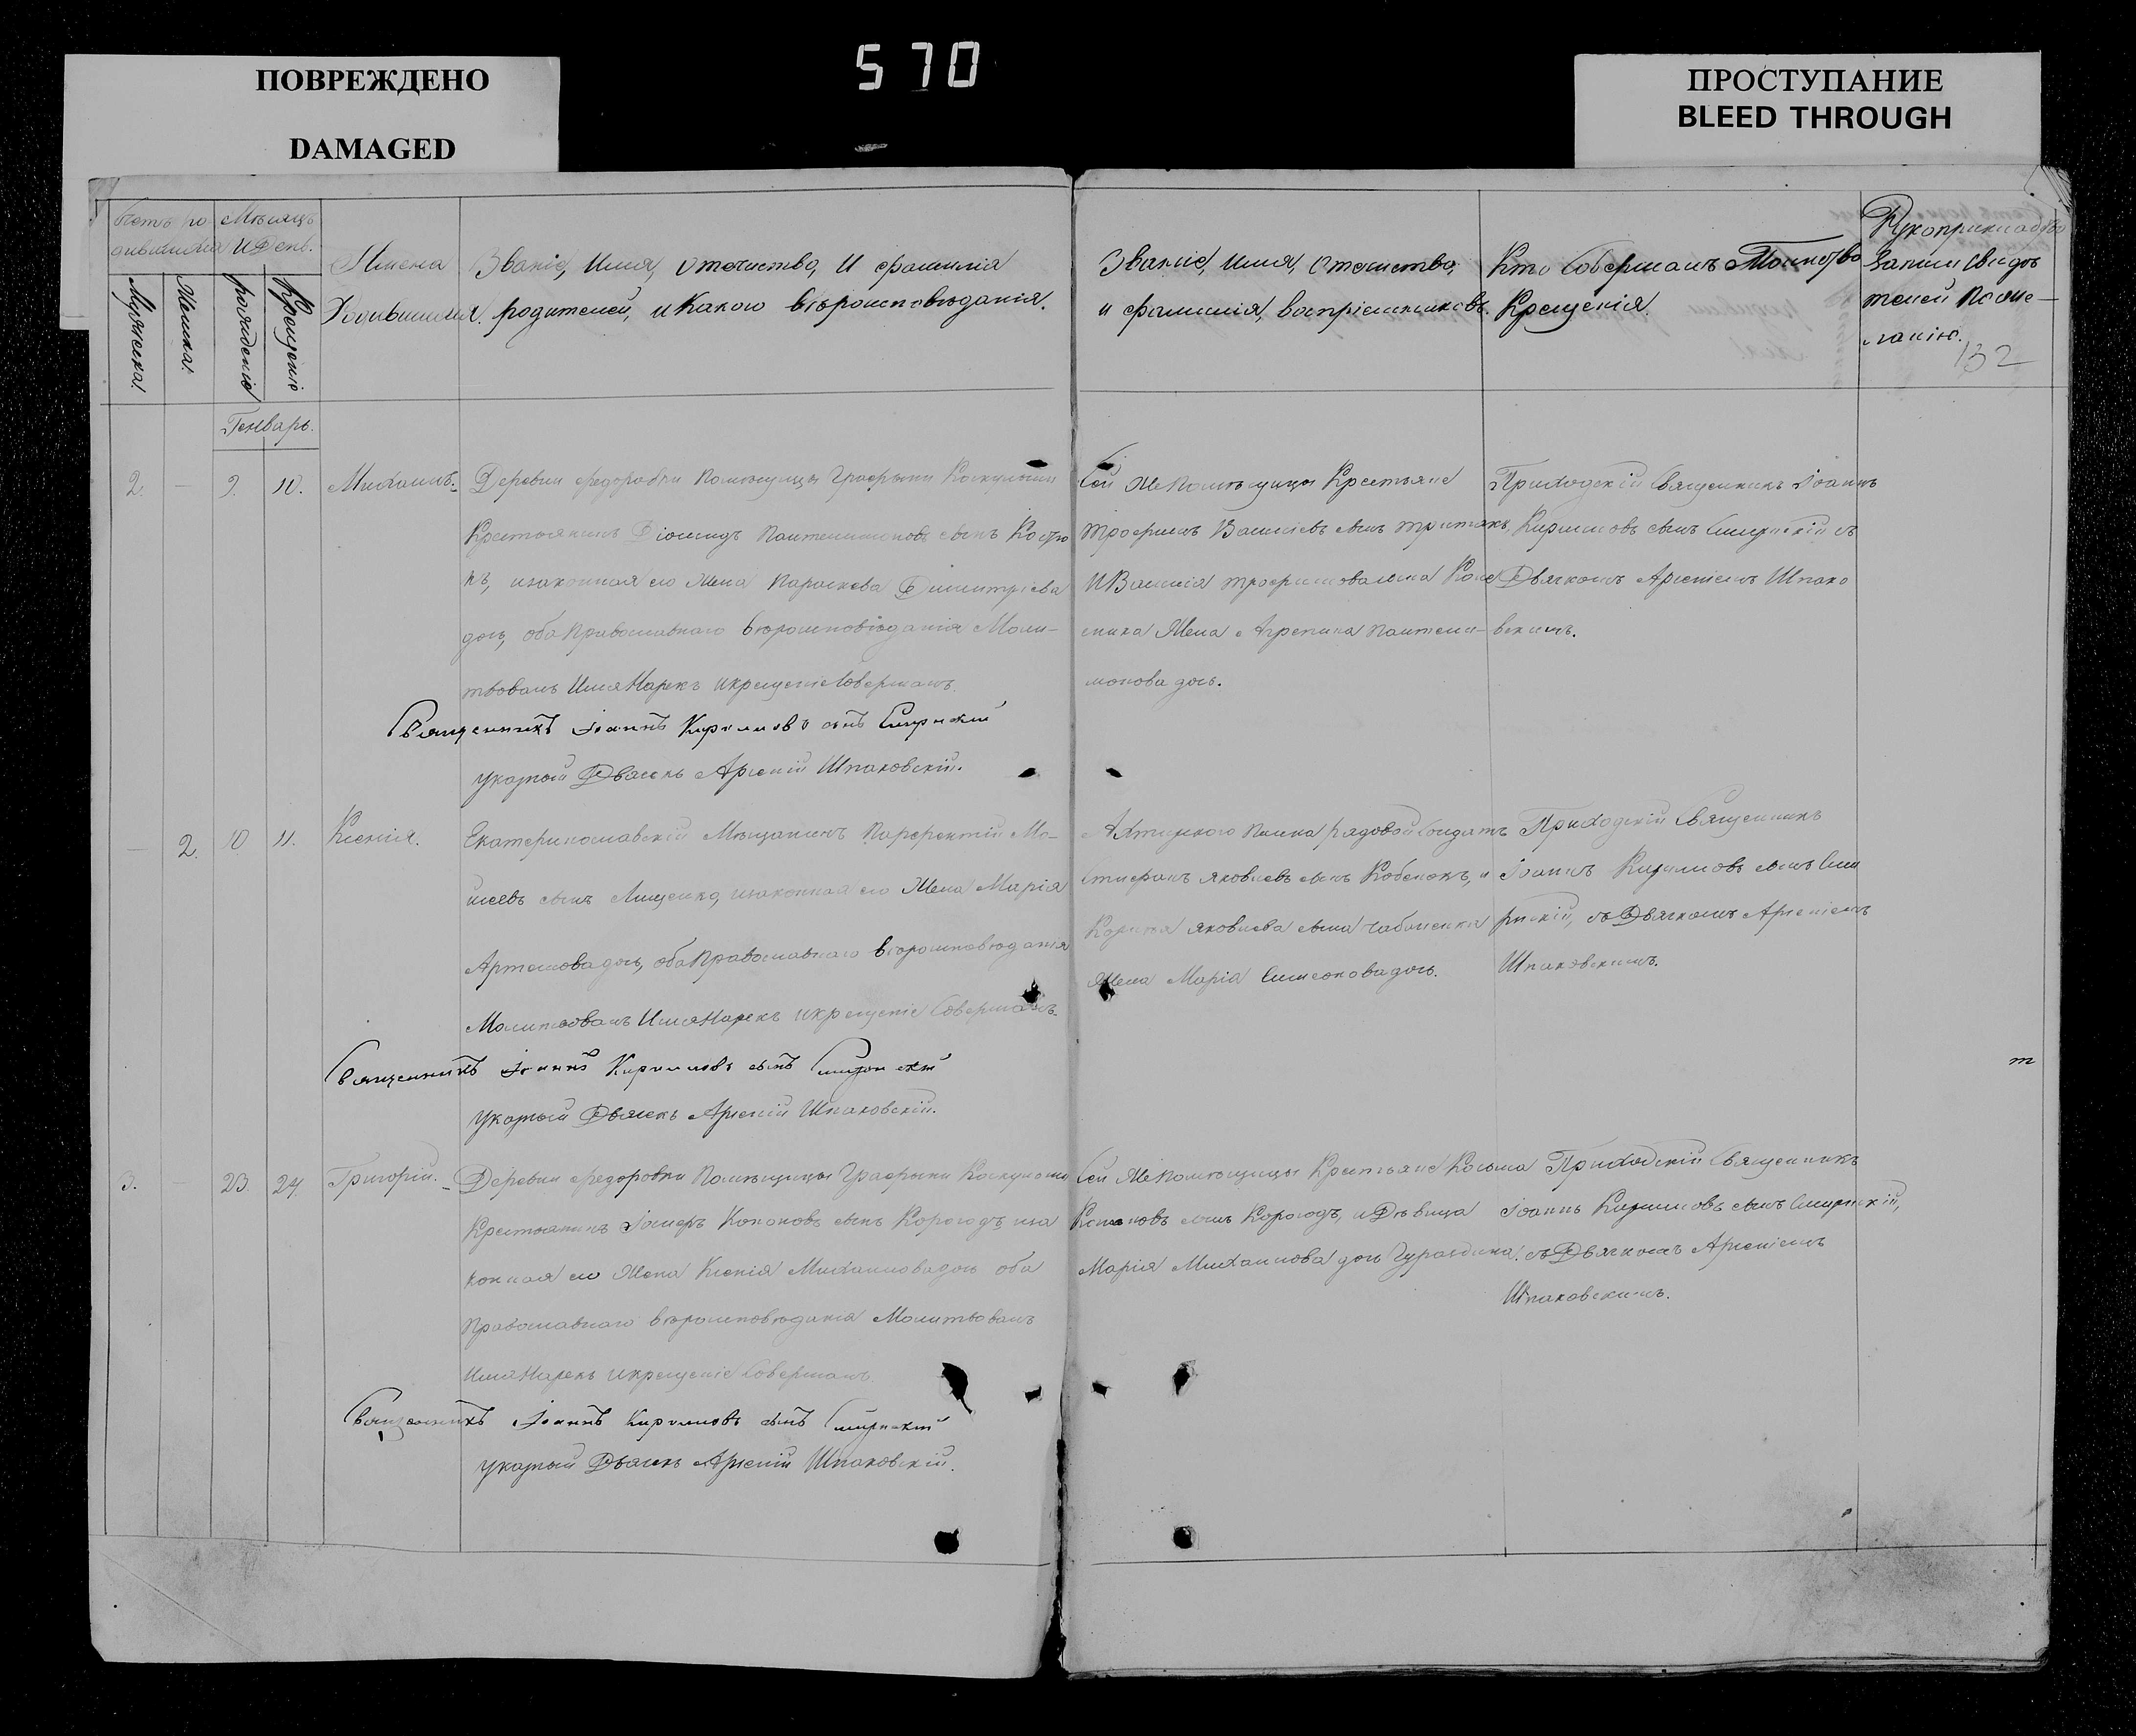 570
ПОВРЕЖДЕНО
DAMAGED
ПРОСТУПАНИЕ
BLEED THROUGH
Мѣсяцъ
и День.
Мужеска.
Женска.
рожденіе
Крещеніе
Имена
Родившихся.
Званіе, Имя, Отечество, и фамилія
родителей, и Какого вѣроисповѣданія.
Званіе, Имя, Отечество,
и фамилія, воспріемниковъ.
Кто Совершалъ Таинство
Крещенія.
Рукоприкладство
Записи Свидѣ
телей по же-
ланію.
132
Генварь.
2. — 9. 10. Михаилъ.
Деревни Федоровки Помѣщицы Графыни
Крестьянинъ Діомидъ Пантелимоновъ сынъ
и законная его Жена Параскева Димитріева
дочь, оба Православнаго вѣроисповѣданія Моли-
твовалъ Имя Нарекъ и крещеніе Совершалъ.
Священникъ Іоаннъ Кириловъ сынъ
указный Дьячекъ Арсеній Шпаковскій.
Сей же Помѣщицы Крестьяне
Трофимъ Василіевъ сынъ
и Василія Трофимова сына
Жена Агрепина Пантели-
монова дочь.
Приходскій Священникъ Іоаннъ
Кириловъ сынъ съ
Дьячкомъ Арсеніемъ Шпако
вскимъ.
— 2. 10 11. Ксенія.
Екатеринославскій Мѣщанинъ Парфентій Мо-
исеевъ сынъ Лищенко, и законная его Жена Марія
Артемова дочь, оба Православнаго вѣроисповѣданія
Молитвовалъ Имя Нарекъ и крещеніе Совершалъ.
Священникъ Іоаннъ Кириловъ сынъ
указный Дьячекъ Арсеній Шпаковскій.
полка рядовой Солдатъ
Стефанъ Яковлевъ сынъ Кобелокъ, и
Яковлева сына
Жена Марія Симеонова дочь.
Приходскій Священникъ
Іоаннъ Кириловъ сынъ
съ Дьячкомъ Арсеніемъ
Шпаковскимъ.
т
3. — 23 24. Григорій.
Деревни Федоровки Помѣщицы Графыни
Крестьянинъ Кононовъ сынъ Корогодъ, и за
конная его Жена Ксенія Михаилова дочь оба
Православнаго вѣроисповѣданія Молитвовалъ
Имя Нарекъ и крещеніе Совершалъ.
Священникъ Іоаннъ Кириловъ сынъ
указный Дьячекъ Арсеній Шпаковскій.
Сей же Помѣщицы Крестьяне Косьма
Кононовъ сынъ Корогодъ, и Дѣвица
Марія Михаилова дочь
Приходскій Священникъ
Іоаннъ Кириловъ сынъ
съ Дьячкомъ Арсеніемъ
Шпаковскимъ.